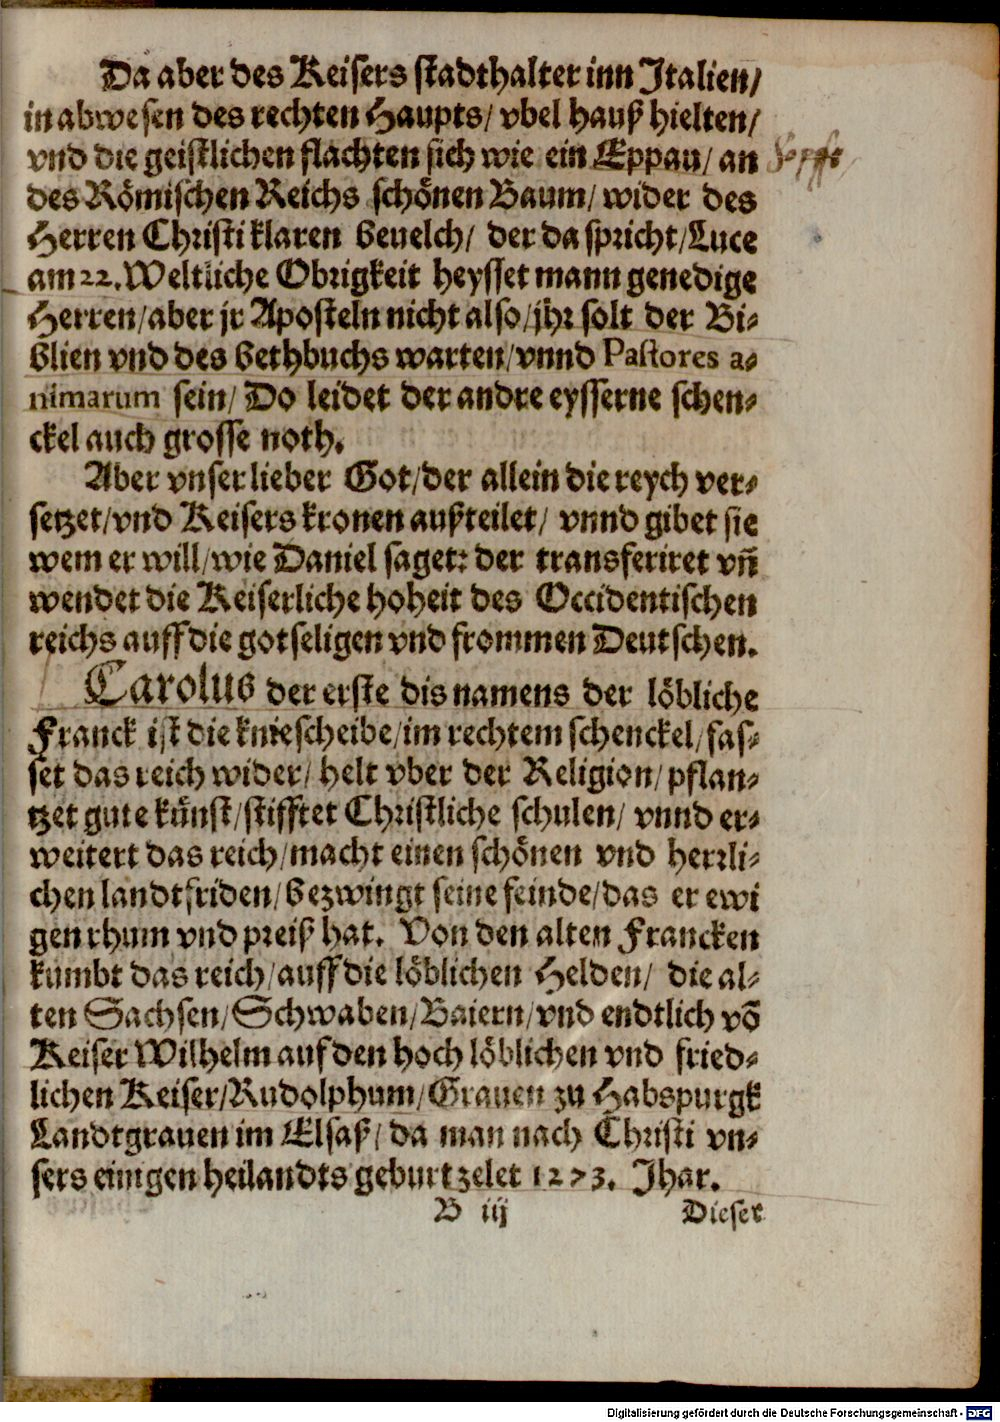 Da aber des Keisers stadthalter inn Italien/
in abwesen des rechten Haupts/ vbel hauß hielten/
vnd die geistlichen flachten sich wie ein Eppau/ an
des Römischen Reichs schönen Baum/ wider des
Herren Christi klaren beuelch/ der da spricht/ Luce
am 22. Weltliche Obrigkeit heysset mann genedige
Herren/ aber jr Aposteln nicht also/ jhr solt der Bi-
blien vnd des bethbuchs warten/ vnnd Pastores a-
nimarum sein/ Do leidet der andre eysserne schen-
ckel auch grosse noth.
Aber vnser lieber Got/ der allein die reych ver-
setzet/ vnd Keisers kronen außteilet/ vnnd gibet sie
wem er will/ wie Daniel saget: der transferiret vn̄
wendet die Keiserliche hoheit des Occidentischen
reichs auff die gotseligen vnd frommen Deutschen.
Carolus der erste dis namens der löbliche
Franck ist die kniescheibe/ im rechtem schenckel/ fas-
set das reich wider/ helt vber der Religion/ pflan-
tzet gute künst/ stifftet Christliche schulen/ vnnd er-
weitert das reich/ macht einen schönen vnd herrli-
chen landtfriden/ bezwingt seine feinde/ das er ewi
gen rhum vnd preiß hat. Von den alten Francken
kumbt das reich/ auff die löblichen Helden/ die al-
ten Sachsen/ Schwaben/ Baiern/ vnd endtlich vō
Keiser Wilhelm auf den hoch löblichen vnd fried-
lichen Keiser/ Rudolphum/ Grauen zu Habspurgk
Landtgrauen im Elsaß/ da man nach Christi vn-
sers einigen heilandts geburt zelet 1273. Jhar.
B iij Dieser
Digitalisierung gefördert durch die Deutsche Forschungsgemeinschaft - DFG